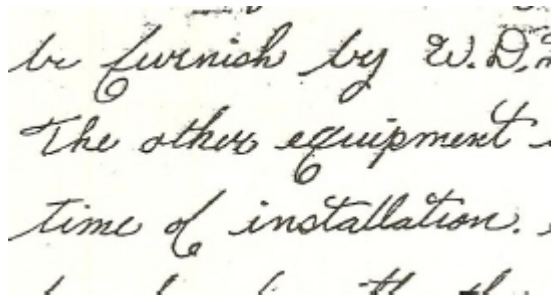 be furnish by W.D.
The other equipment
time of installation.